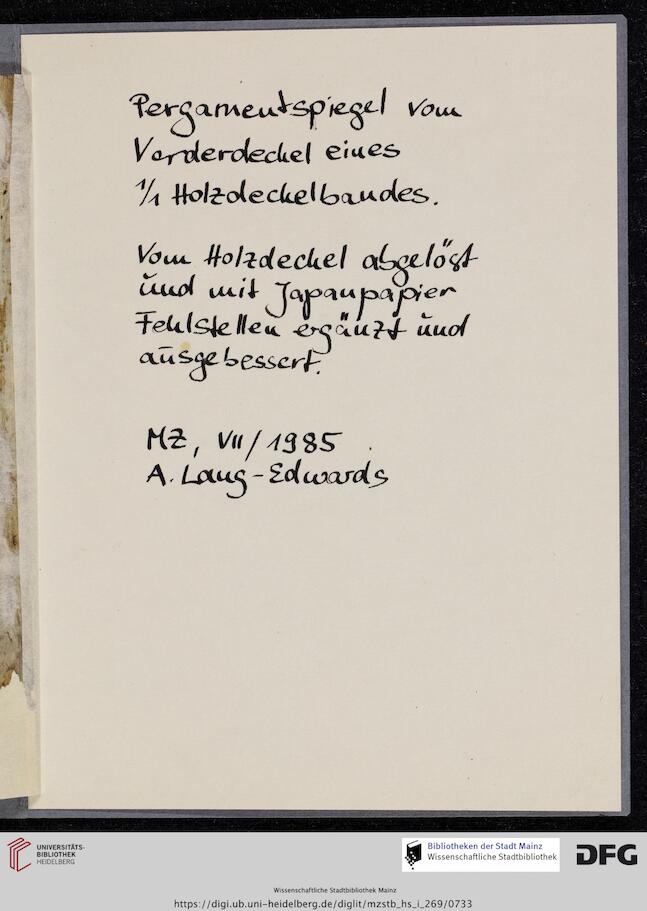 Pergamentspiegel vom
Vorderdeckel eines
1/1 Holzdeckelbandes.
Vom Holzdeckel abgelöst
und mit Japanpapier
Fehlstellen ergänzt und
ausgebessert.
MZ, VII/1985
A. Lang-Edwards
UNIVERSITÄTS-
BIBLIOTHEK
HEIDELBERG
Bibliotheken der Stadt Mainz
Wissenschaftliche Stadtbibliothek
DFG
Wissenschaftliche Stadtbibliothek Mainz
https://digi.ub.uni-heidelberg.de/diglit/mzstb_hs_i_269/0733